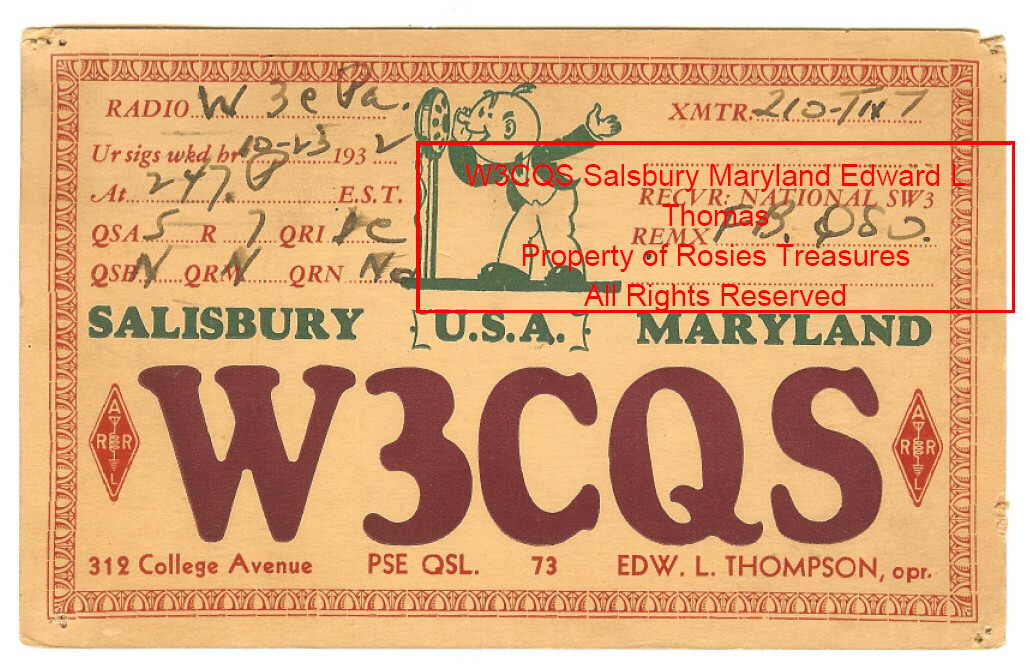 RADIO W 3 e Pa.
XMTR. 210-TNT
Ur sigs wkd hr 10-23 1932
At 247. P E.S.T.
RECVR: NATIONAL SW3
QSA 5 R 7 QRI dc
REMX F.B. QSO.
QSB N QRM N QRN No
W3CQS Salsbury Maryland Edward L
Thomas
Property of Rosies Treasures
All Rights Reserved
SALISBURY U.S.A. MARYLAND
W3CQS
A
R R
L
A
R R
L
312 College Avenue PSE QSL. 73 EDW. L. THOMPSON, opr.